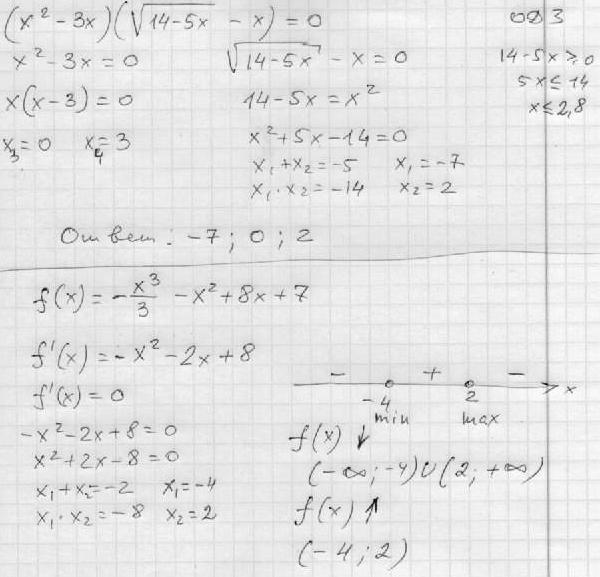 (x² - 3x)(√(14-5x) - x) = 0
ОДЗ
x² - 3x = 0
√(14-5x) - x = 0
14 - 5x ≥ 0
x(x-3) = 0
14 - 5x = x²
5x ≤ 14
x₃=0 x₄=3
x² + 5x - 14 = 0
x ≤ 2,8
x₁ + x₂ = -5 x₁ = -7
x₁ · x₂ = -14 x₂ = 2
Ответ: -7; 0; 2
f(x) = -x³/3 - x² + 8x + 7
f'(x) = -x² - 2x + 8
f'(x) = 0
-x² - 2x + 8 = 0
x² + 2x - 8 = 0
x₁ + x₂ = -2 x₁ = -4
x₁ · x₂ = -8 x₂ = 2
- + -
-4 2 x
min max
f(x) ↓
(-∞; -4) ∪ (2; +∞)
f(x) ↑
(-4; 2)